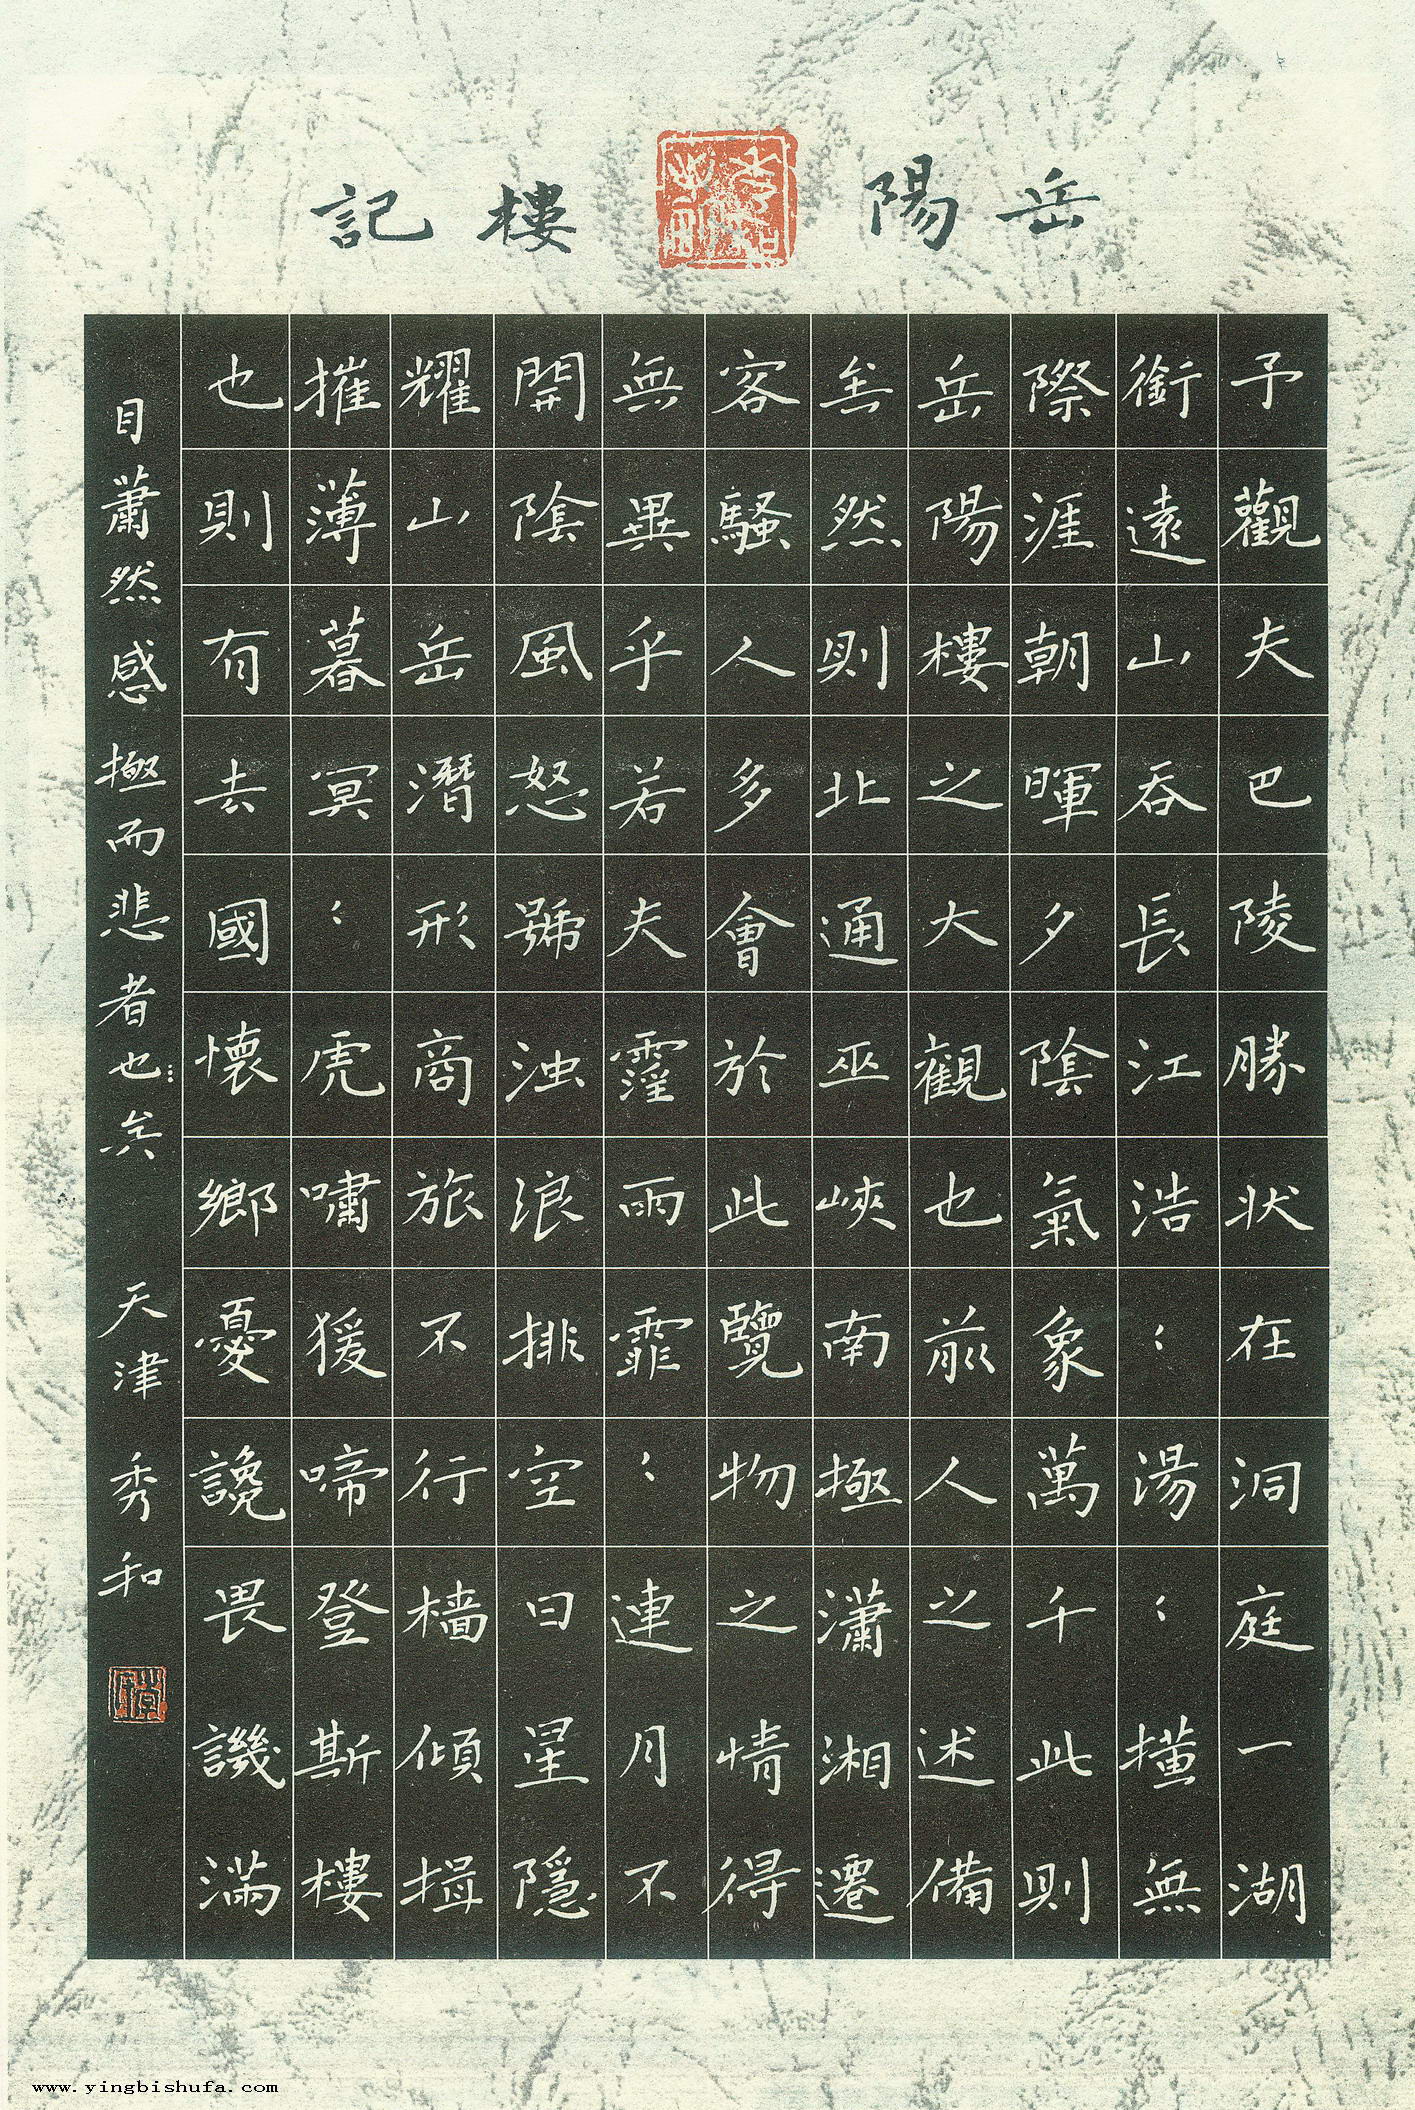 岳陽樓記
予觀夫巴陵勝狀在洞庭一湖
銜遠山吞長江浩：湯：橫無
際涯朝暉夕陰氣象萬千此則
岳陽樓之大觀也前人之述備
矣然則北通巫峽南極瀟湘遷
客騷人多會於此覽物之情得
無異乎若夫霪雨霏：連月不
開陰風怒號浊浪排空日星隱
耀山岳潛形商旅不行檣傾楫
摧薄暮冥：虎嘯猨啼登斯樓
也則有去國懷鄉憂讒畏譏滿
目蕭然感極而悲者也矣 天津秀和
www.yingbishufa.com